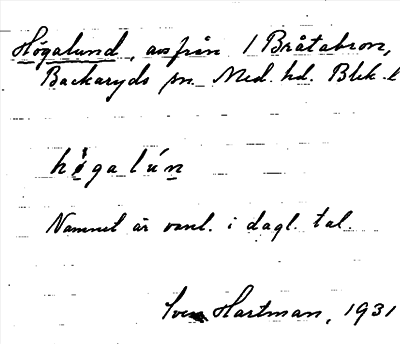 Högalund, avs från 1 Bråtabron,
Backaryds sn. Med. hd. Blek. l
högalún
Namnet är vanl. i dagl. tal.
Sven Hartman, 1931